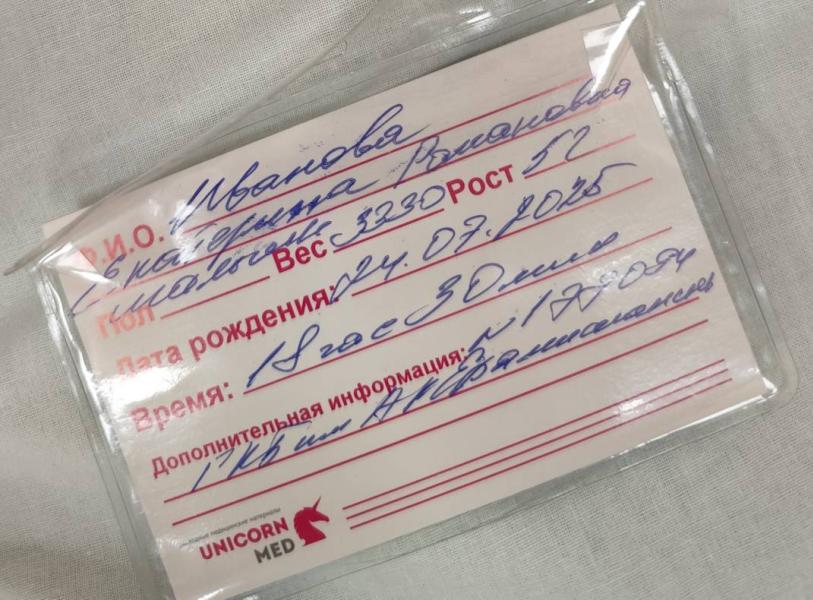 Ф.И.О. Иванова
Екатерина Романовна
Пол мальчик Вес 3330 Рост 52
Дата рождения: 24.07.2025
Время: 18 час 30 мин
Дополнительная информация: N
ГКБ им
расходные медицинские материалы
UNICORN
MED